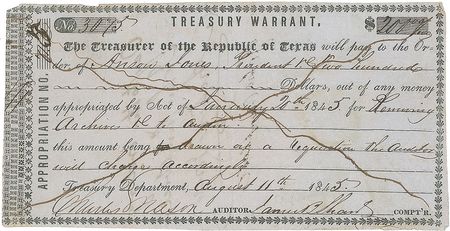 TREASURY WARRANT.
No. 3075 $200
The Treasurer of the Republic of Texas will pay to the Or-
der of Anson Jones, President &c Two hundred
Dollars, out of any money
appropriated by Act of January 1845 for Removing
Archives &c to Austin
this amount being drawn on a Requisition the Auditor
will charge accordingly
Treasury Department, August 11th 1845.
Charles Mason AUDITOR. James B Shaw COMPT'R.
APPROPRIATION NO.